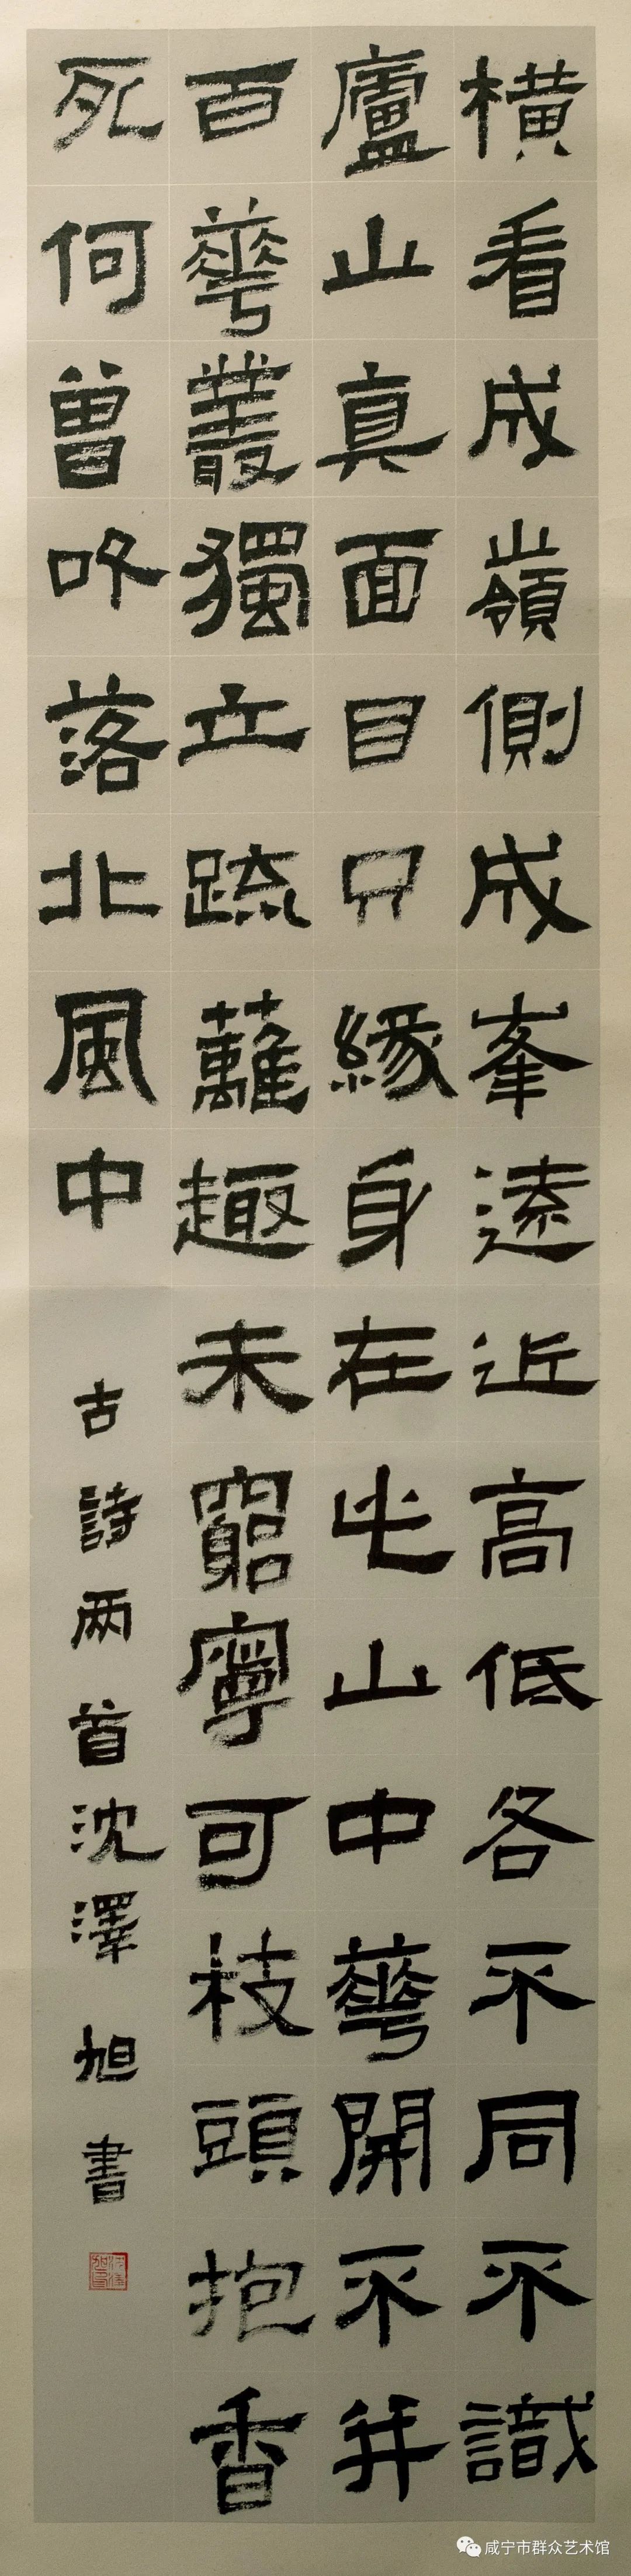 橫看成嶺側成峯遠近高低各不同不識
廬山真面目只緣身在此山中華開不并
百華叢獨立疏蘺趣未窮寧可枝頭抱香
死何曾吹落北風中
古詩两首沈澤旭書
咸宁市群众艺术馆